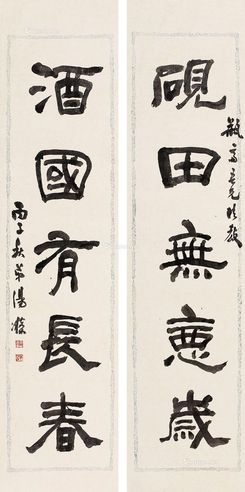 硯田無惡歲
瓶齋 兄 教
酒國有長春
丙子秋弟湯滌